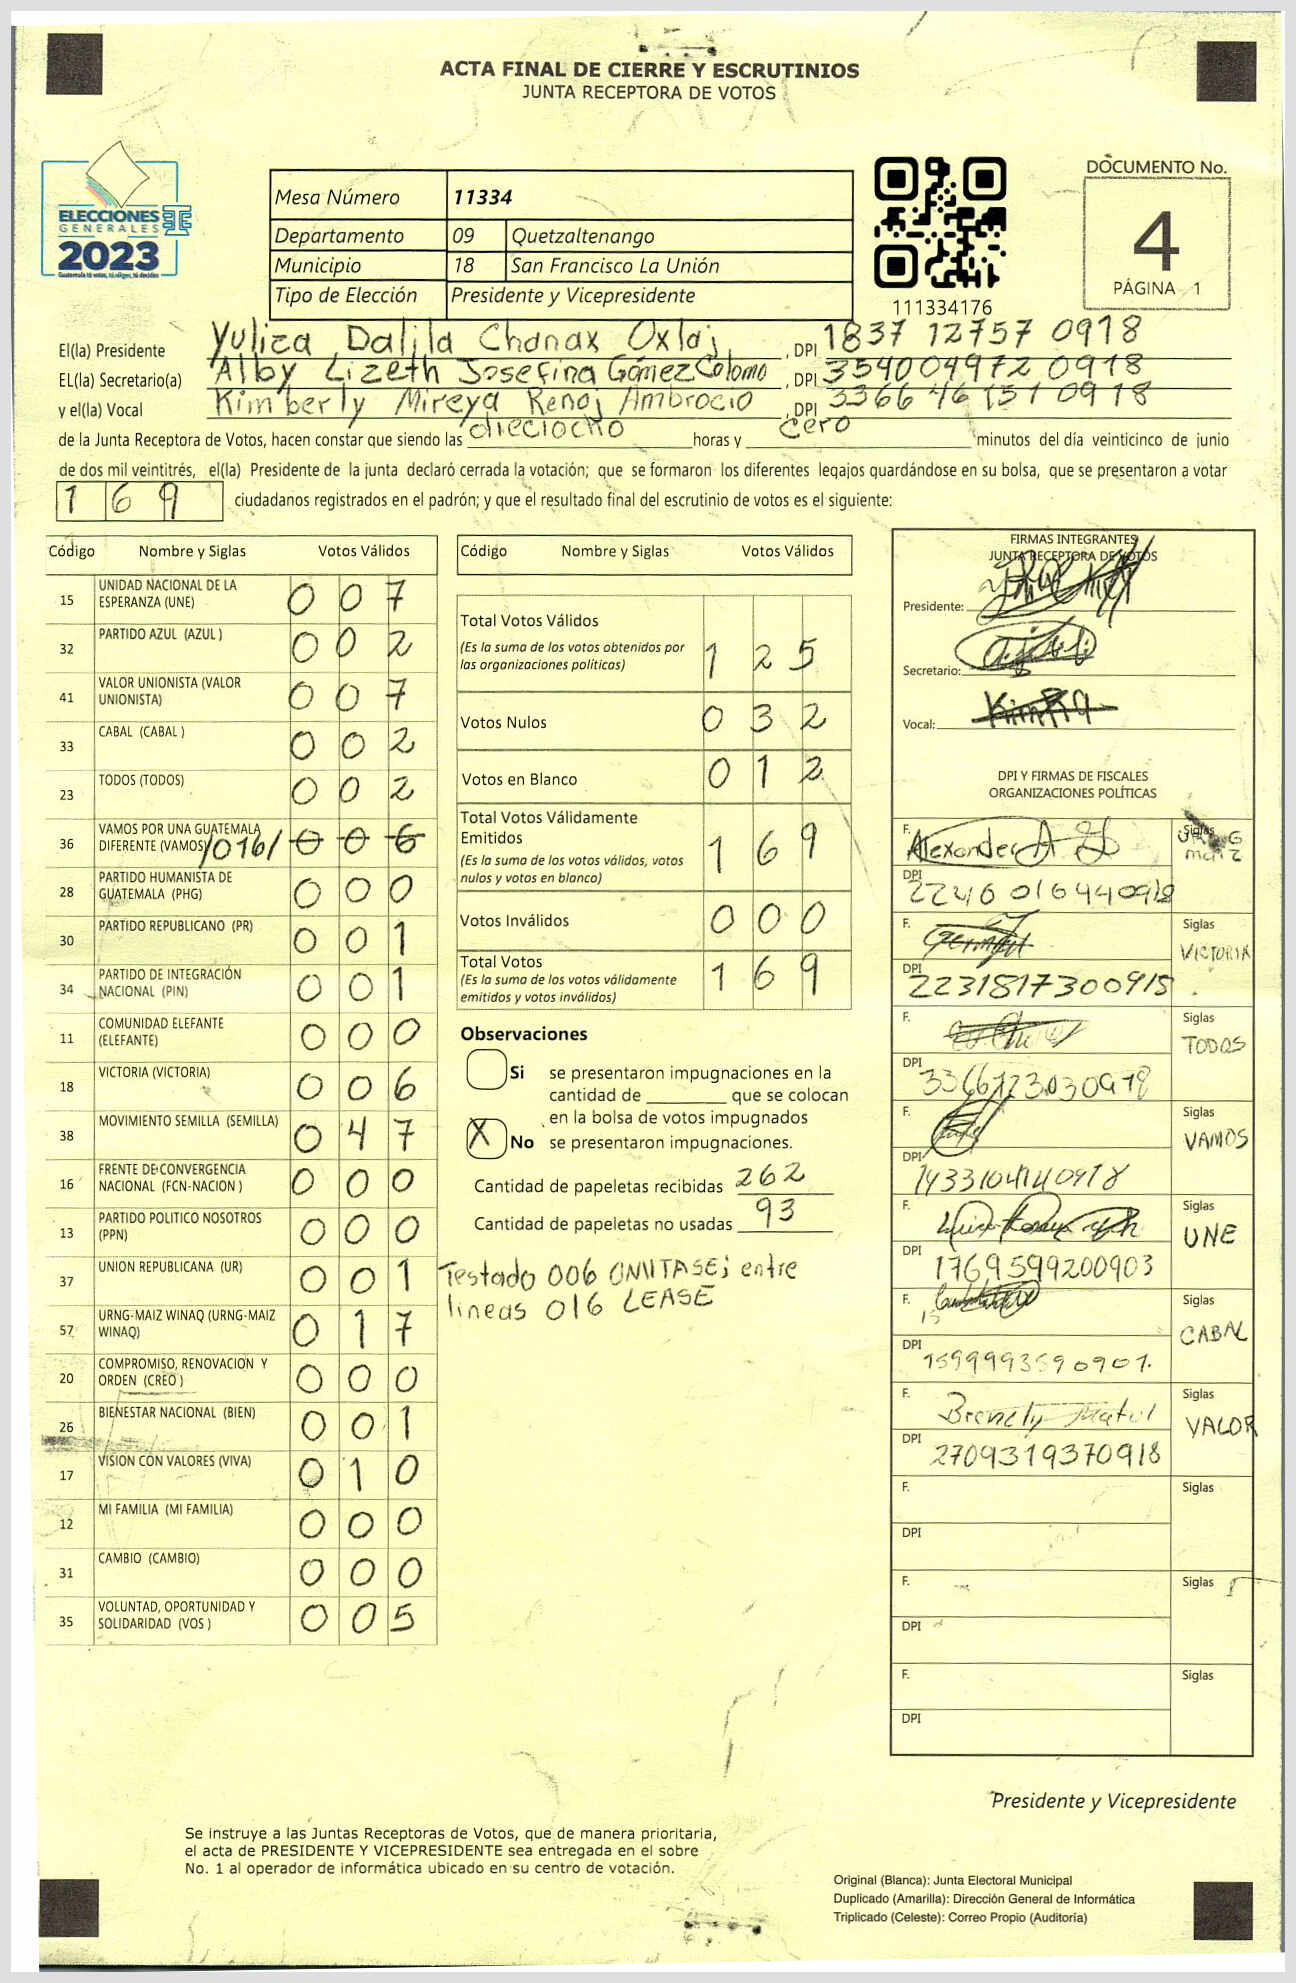 ACTA FINAL DE CIERRE Y ESCRUTINIOS
JUNTA RECEPTORA DE VOTOS
ELECCIONES
GENERALES
2023
Guatemala tú votas, tú eliges, tú decides
Mesa Número 11334
Departamento 09 Quetzaltenango
Municipio 18 San Francisco La Unión
Tipo de Elección Presidente y Vicepresidente
111334176
DOCUMENTO No.
4
PÁGINA 1
El(la) Presidente Yuliza Dalila Chanax Oxlaj, DPI 1837 12757 0918
EL(la) Secretario(a) Alby Lizeth Josefina Gómez Colomo, DPI 354004972 0918
y el(la) Vocal Kimberly Mireya Renoj Ambrocio, DPI 3366 46151 0918
de la Junta Receptora de Votos, hacen constar que siendo las dieciocho horas y cero minutos del día veinticinco de junio
de dos mil veintitrés, el(la) Presidente de la junta declaró cerrada la votación; que se formaron los diferentes legajos guardándose en su bolsa, que se presentaron a votar
169 ciudadanos registrados en el padrón; y que el resultado final del escrutinio de votos es el siguiente:
Código Nombre y Siglas Votos Válidos
15 UNIDAD NACIONAL DE LA ESPERANZA (UNE) 0 0 7
32 PARTIDO AZUL (AZUL ) 0 0 2
41 VALOR UNIONISTA (VALOR UNIONISTA) 0 0 7
33 CABAL (CABAL ) 0 0 2
23 TODOS (TODOS) 0 0 2
36 VAMOS POR UNA GUATEMALA DIFERENTE (VAMOS) /016/ 0 0 6
28 PARTIDO HUMANISTA DE GUATEMALA (PHG) 0 0 0
30 PARTIDO REPUBLICANO (PR) 0 0 1
34 PARTIDO DE INTEGRACIÓN NACIONAL (PIN) 0 0 1
11 COMUNIDAD ELEFANTE (ELEFANTE) 0 0 0
18 VICTORIA (VICTORIA) 0 0 6
38 MOVIMIENTO SEMILLA (SEMILLA) 0 4 7
16 FRENTE DE CONVERGENCIA NACIONAL (FCN-NACION ) 0 0 0
13 PARTIDO POLITICO NOSOTROS (PPN) 0 0 0
37 UNION REPUBLICANA (UR) 0 0 1
57 URNG-MAIZ WINAQ (URNG-MAIZ WINAQ) 0 1 7
20 COMPROMISO, RENOVACION Y ORDEN (CREO ) 0 0 0
26 BIENESTAR NACIONAL (BIEN) 0 0 1
17 VISION CON VALORES (VIVA) 0 1 0
12 MI FAMILIA (MI FAMILIA) 0 0 0
31 CAMBIO (CAMBIO) 0 0 0
35 VOLUNTAD, OPORTUNIDAD Y SOLIDARIDAD (VOS ) 0 0 5
Código Nombre y Siglas Votos Válidos
Total Votos Válidos
(Es la suma de los votos obtenidos por las organizaciones políticas) 1 2 5
Votos Nulos 0 3 2
Votos en Blanco 0 1 2
Total Votos Válidamente Emitidos
(Es la suma de los votos válidos, votos nulos y votos en blanco) 1 6 9
Votos Inválidos 0 0 0
Total Votos
(Es la suma de los votos válidamente emitidos y votos inválidos) 1 6 9
Observaciones
Si se presentaron impugnaciones en la
cantidad de ________ que se colocan
en la bolsa de votos impugnados
X No se presentaron impugnaciones.
Cantidad de papeletas recibidas 262
Cantidad de papeletas no usadas 93
Testado 006 OMITASE; entre
lineas 016 LEASE
FIRMAS INTEGRANTES
JUNTA RECEPTORA DE VOTOS
Presidente:
Secretario:
Vocal:
DPI Y FIRMAS DE FISCALES
ORGANIZACIONES POLÍTICAS
F. Alexander Siglas
DPI 2246 01644 0918
F. Siglas VICTORIA
DPI 2231817300918
F. Siglas TODOS
DPI 3366123030918
F. Siglas VAMOS
DPI 1433104140918
F. Siglas UNE
DPI 1769599200903
F. Siglas CABAL
DPI 1599993590901.
F. Siglas VALOR
DPI 2709319370918
F. Siglas
DPI
F. Siglas
DPI
F. Siglas
DPI
Presidente y Vicepresidente
Se instruye a las Juntas Receptoras de Votos, que de manera prioritaria,
el acta de PRESIDENTE Y VICEPRESIDENTE sea entregada en el sobre
No. 1 al operador de informática ubicado en su centro de votación.
Original (Blanca): Junta Electoral Municipal
Duplicado (Amarilla): Dirección General de Informática
Triplicado (Celeste): Correo Propio (Auditoría)